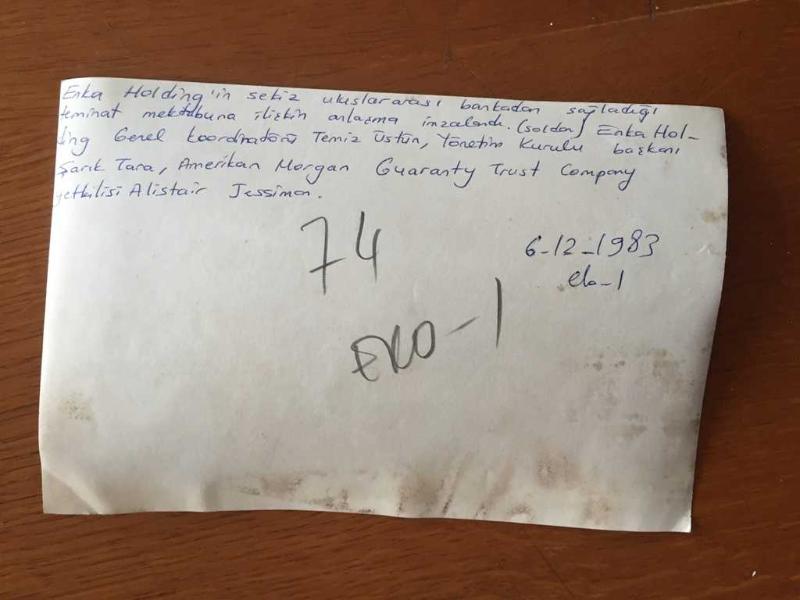 Enka Holding'in sekiz uluslararası bankadan sağladığı
teminat mektubuna ilişkin anlaşma imzalandı. (soldan) Enka Hol-
ding Genel koordinatörü Temiz Üstün, Yönetim Kurulu başkanı
Şarık Tara, Amerikan Morgan Guaranty Trust Company
yetkilisi Alistair Jessiman.
74
6-12-1983
eko-1
EKO-1